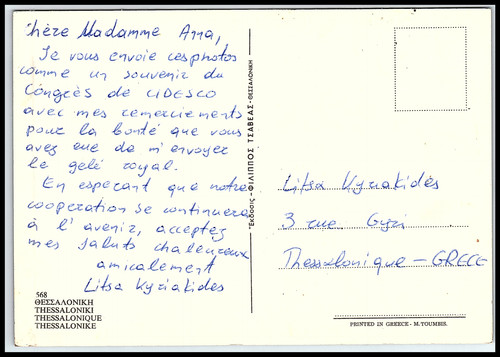 Chère Madamme Anna,
Je vous envoie ces photos
comme un souvenir du
Congrès de
avec mes remerciements
pour la bonté que vous
avez eue de m'envoyer
le gelé royal.
En esperant que notre
cooperation se continuera
à l'avenir, acceptez
mes saluts chaleureux
amicalement
Litsa Kyriakides
568
ΘΕΣΣΑΛΟΝΙΚΗ
THESSALONIKI
THESSALONIQUE
THESSALONIKE
Ἔκδοσις - ΦΙΛΙΠΠΟΣ ΤΣΑΒΕΑΣ - ΘΕΣΣΑΛΟΝΙΚΗ
Litsa Kyriakidès
3 rue
Thessalonique - GRECE
PRINTED IN GREECE - M. TOUMBIS.